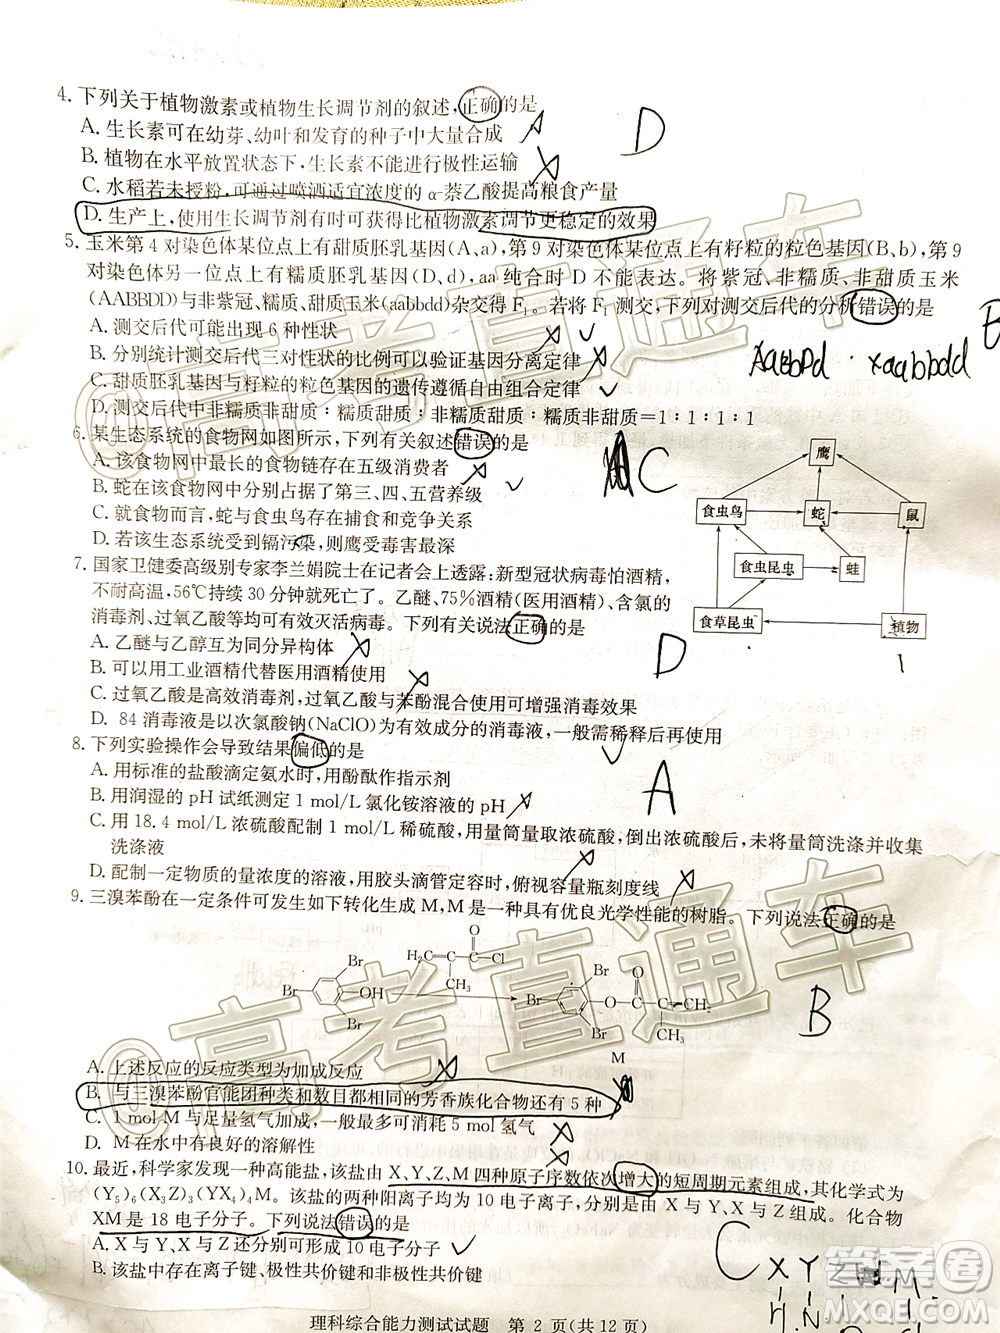 4. 下列关于植物激素或植物生长调节剂的叙述,正确的是
A. 生长素可在幼芽、幼叶和发育的种子中大量合成
B. 植物在水平放置状态下,生长素不能进行极性运输
D
C. 水稻若未授粉,可通过喷洒适宜浓度的 α-萘乙酸提高粮食产量
D. 生产上,使用生长调节剂有时可获得比植物激素调节更稳定的效果
5. 玉米第 4 对染色体某位点上有甜质胚乳基因(A、a),第 9 对染色体某位点上有籽粒的粒色基因(B、b),第 9
对染色体另一位点上有糯质胚乳基因(D、d),aa 纯合时 D 不能表达。将紫冠、非糯质、非甜质玉米
(AABBDD)与非紫冠、糯质、甜质玉米(aabbdd)杂交得 F₁。若将 F₁ 测交,下列对测交后代的分析错误的是
A. 测交后代可能出现 6 种性状
B
B. 分别统计测交后代三对性状的比例可以验证基因分离定律
C. 甜质胚乳基因与籽粒的粒色基因的遗传遵循自由组合定律
D. 测交后代中非糯质非甜质∶糯质甜质∶非糯质甜质∶糯质非甜质=1∶1∶1∶1
6. 某生态系统的食物网如图所示,下列有关叙述错误的是
A. 该食物网中最长的食物链存在五级消费者
C
B. 蛇在该食物网中分别占据了第三、四、五营养级
C. 就食物而言,蛇与食虫鸟存在捕食和竞争关系
D. 若该生态系统受到镉污染,则鹰受害最深
鹰
食虫鸟
蛇
鼠
食虫昆虫
蛙
食草昆虫
植物
7. 国家卫健委高级别专家李兰娟院士在记者会上透露:新型冠状病毒怕酒精,
不耐高温,56℃持续 30 分钟就死亡了。乙醚、75%酒精(医用酒精)、含氯的
消毒剂、过氧乙酸等均可有效灭活病毒。下列有关说法正确的是
A. 乙醚与乙醇互为同分异构体
D
B. 可以用工业酒精代替医用酒精使用
C. 过氧乙酸是高效消毒剂,过氧乙酸与苯酚混合使用可增强消毒效果
D. 84 消毒液是以次氯酸钠(NaClO)为有效成分的消毒液,一般需稀释后再使用
8. 下列实验操作会导致结果偏低的是
A. 用标准的盐酸滴定氨水时,用酚酞作指示剂
A
B. 用润湿的 pH 试纸测定 1 mol/L 氯化铵溶液的 pH
C. 用 18.4 mol/L 浓硫酸配制 1 mol/L 稀硫酸,用量筒量取浓硫酸,倒出浓硫酸后,未将量筒洗涤并收集
洗涤液
D. 配制一定物质的量浓度的溶液,用胶头滴管定容时,俯视容量瓶刻度线
9. 三溴苯酚在一定条件可发生如下转化生成 M,M 是一种具有优良光学性能的树脂。下列说法正确的是
Br
Br
Br
OH
H₂C
O
Cl
CH₃
Br
Br
Br
O
O
CH₂
CH₃
M
B
A. 上述反应的反应类型为加成反应
B. 与三溴苯酚官能团种类和数目都相同的芳香族化合物还有 5 种
C. 1 mol M 与足量氢气加成,一般最多可消耗 5 mol 氢气
D. M 在水中有良好的溶解性
10. 最近,科学家发现一种高能盐,该盐由 X、Y、Z、M 四种原子序数依次增大的短周期元素组成,其化学式为
(Y₅)₆(X₃Z)₃(YX₄)₄M。该盐的两种阳离子均为 10 电子离子,分别是由 X 与 Y、X 与 Z 组成。化合物
XM是 18 电子分子。下列说法错误的是
C
A. X 与 Y、X 与 Z 还分别可形成 10 电子分子
B. 该盐中存在离子键、极性共价键和非极性共价键
X Y Z M
H N O Cl
理科综合能力测试试题 第 2 页(共 12 页)
@高考直通车
@高考直通车
答案圈
MXQE.COM